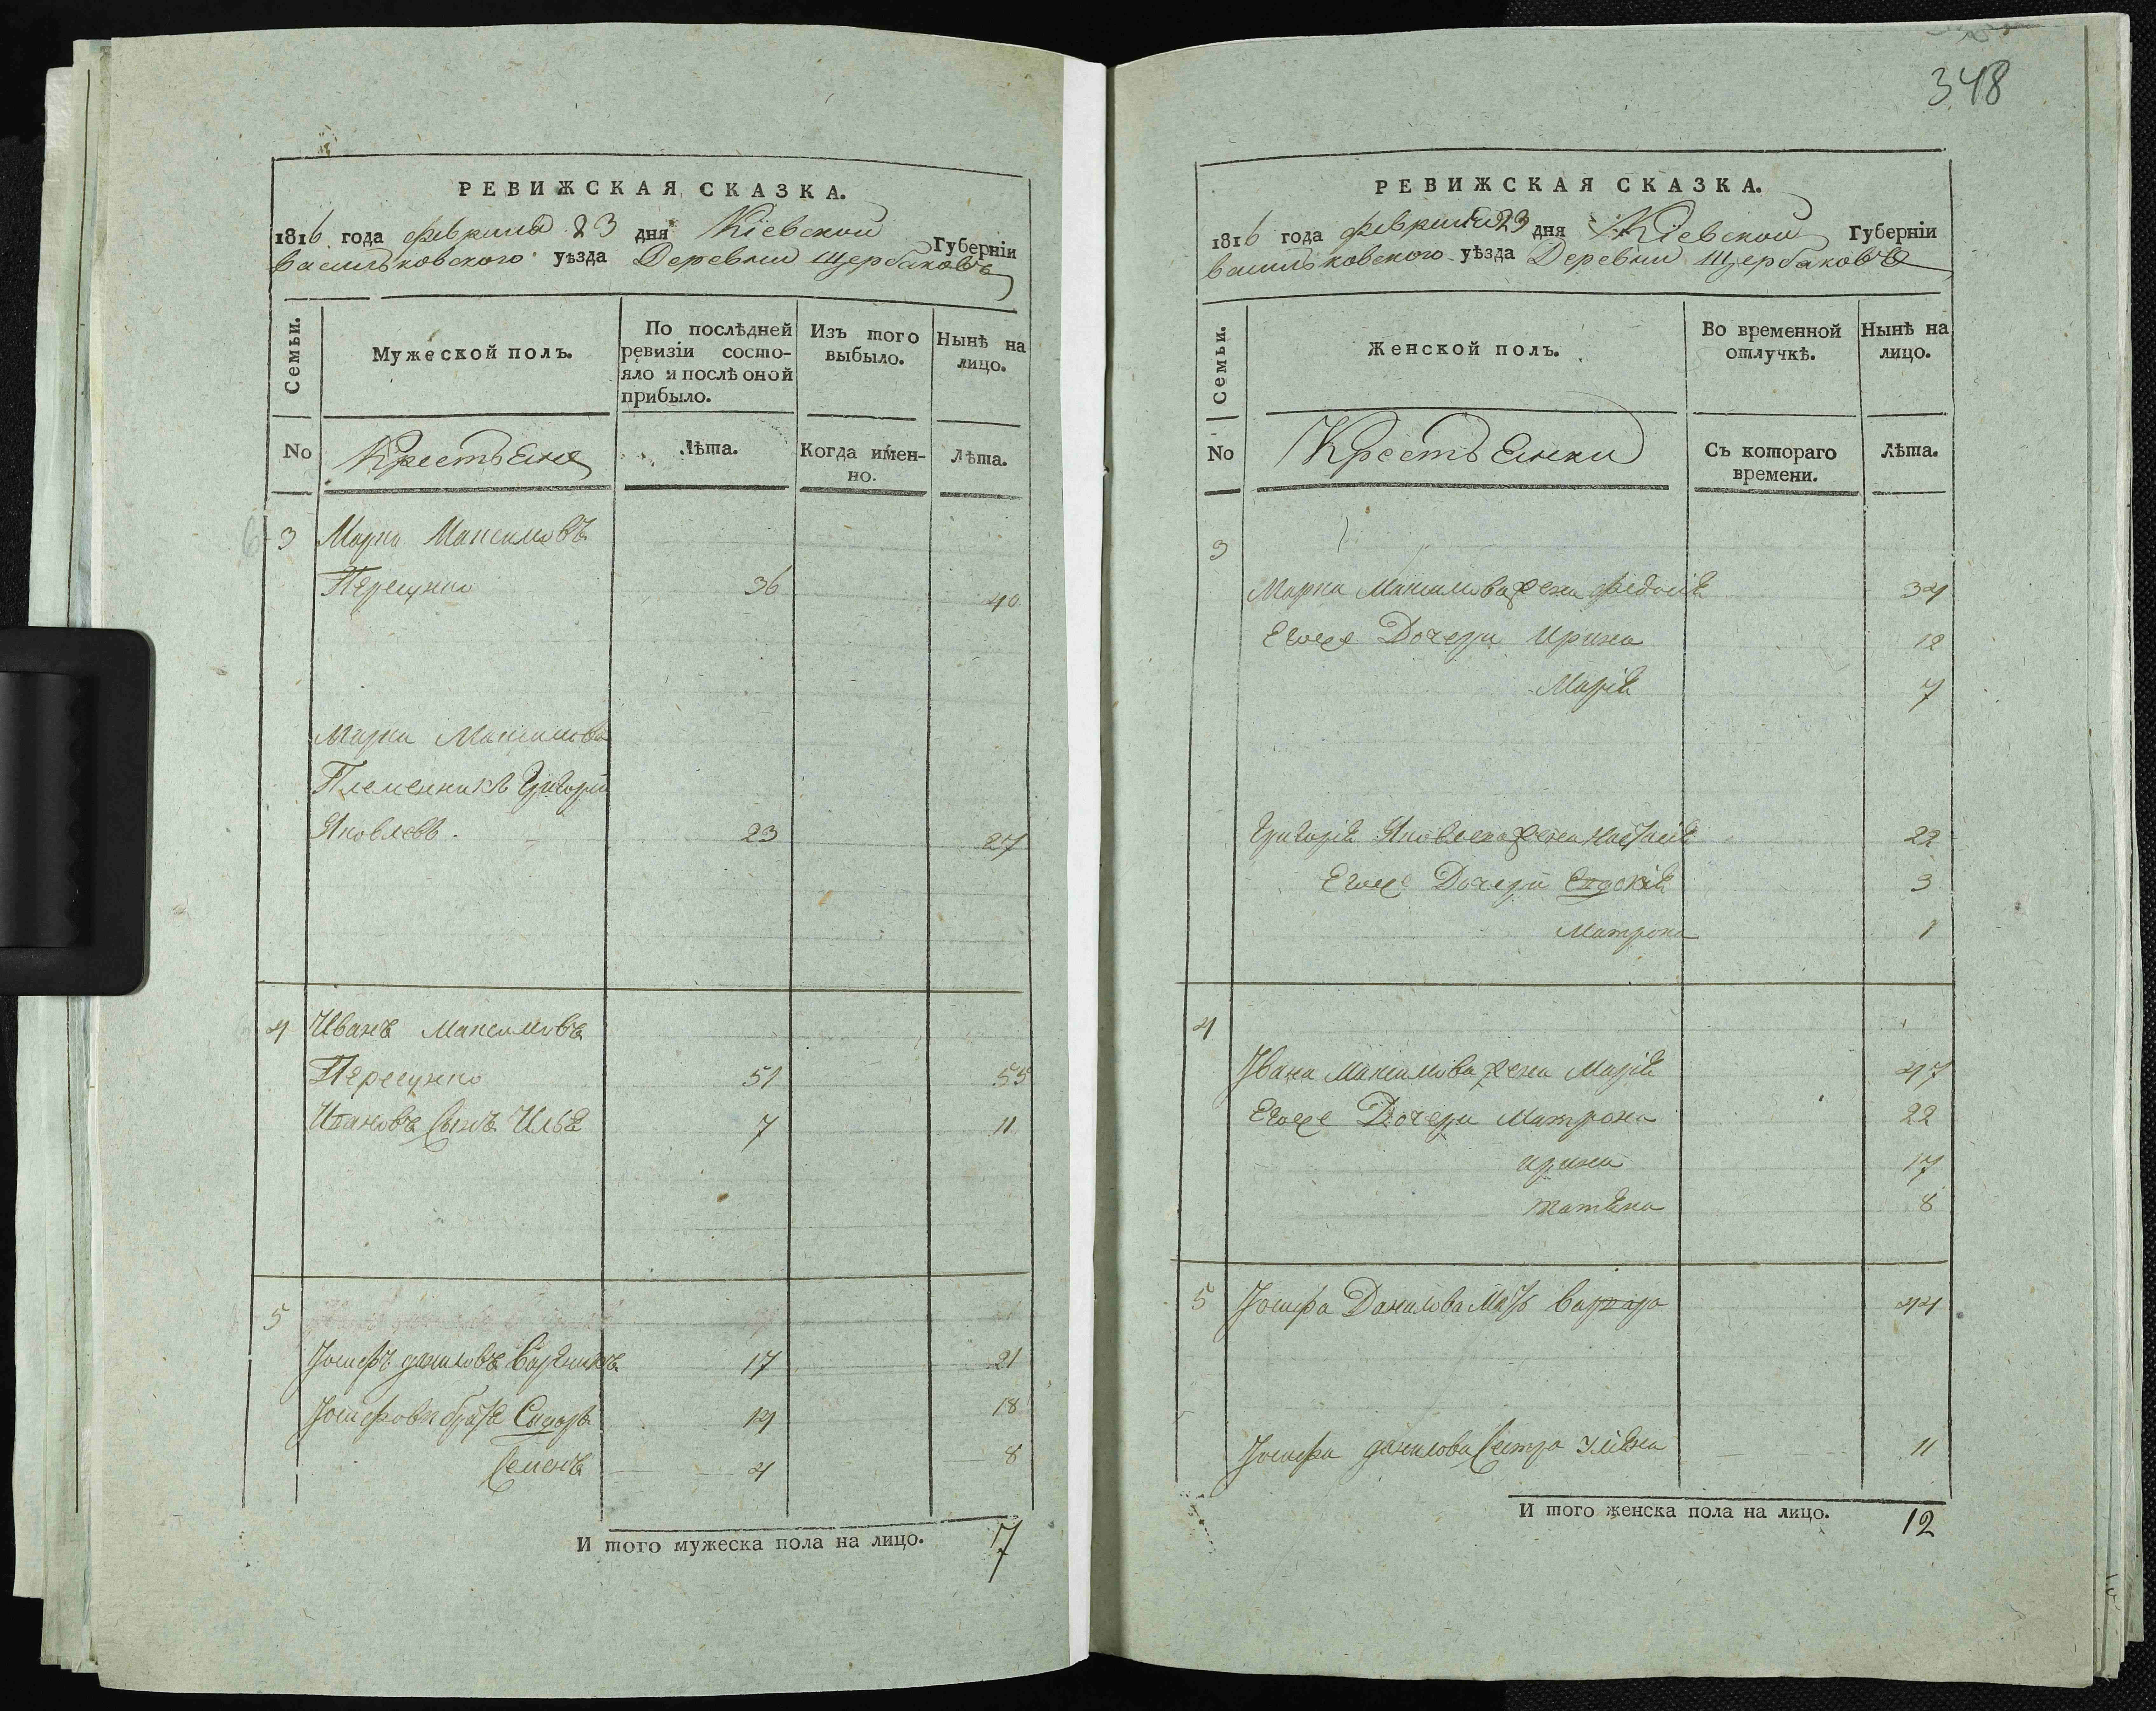 РЕВИЖСКАЯ СКАЗКА.
1816 года февраля 23 дня Кіевской Губерніи
васильковского уѣзда Деревни Щербаковъ
Семьи.
Мужеской полъ.
По послѣдней ревизіи состо-
яло и послѣ оной
прибыло.
Изъ того
выбыло.
Нынѣ на
лицо.
No
Крестьяне
Лѣта.
Когда имен-
но.
Лѣта.
3 Марко Максимовъ
Пересунко 36 40
Марка Максимова
Племенникъ Григорій
Яковлевъ. 23 27
4 Иванъ Максимовъ
Пересунко 51 55
Ивановъ Сынъ Илья 7 11
5
Іосифъ даниловъ 17 21
Іосифови братя Сидоръ 14 18
Семенъ 4 8
И того мужеска пола на лицо. 7
348
РЕВИЖСКАЯ СКАЗКА.
1816 года февраля 23 дня Кіевской Губерніи
васильковского уѣзда Деревни Щербаковъ
Семьи.
Женской полъ.
Во временной
отлучкѣ.
Нынѣ на
лицо.
No
Крестьянки
Съ котораго
времени.
Лѣта.
3
Марка Максимова жена Федосія 34
Егоже Дочери Ирина 12
Марія 7
Григорія Яковлева жена Настасія 22
Егоже Дочери 3
Матрона 1
4
Івана Максимова жена Марія 47
Егоже Дочери Матрона 22
Ирина 17
татяна 8
5 Іосифа Данилова Мать варвара 44
Іосифа данилова Сестра Уляна 11
И того женска пола на лицо. 12